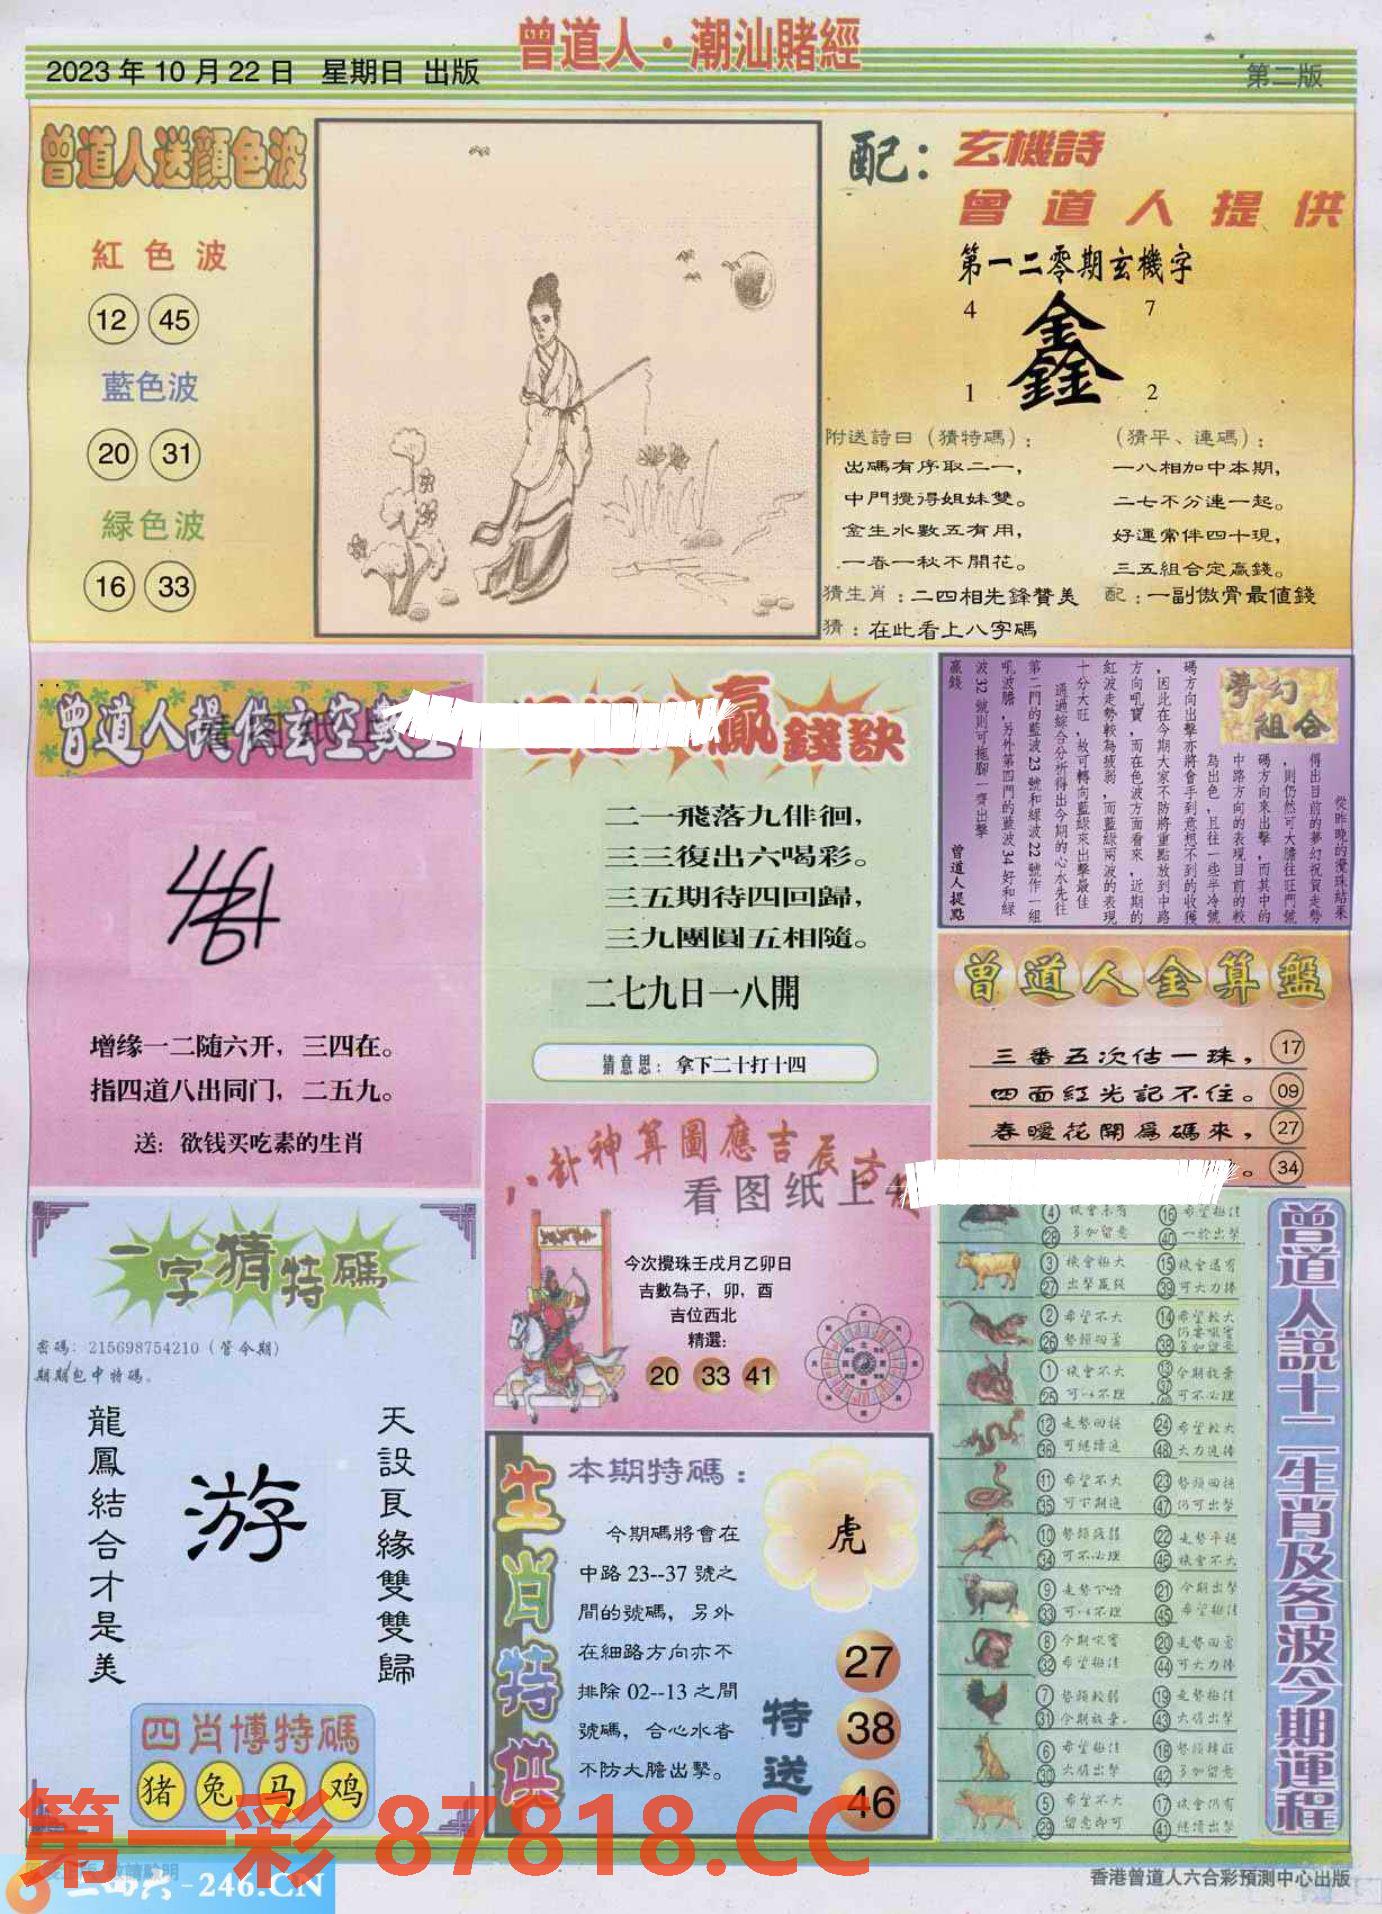 曾道人·潮汕賭經
2023年10月22日 星期日 出版
第二版
曾道人送顔色波
紅色波
12 45
藍色波
20 31
緑色波
16 33
配：玄機詩
曾道人提供
第一二零期玄機字
4 7
鑫
1 2
附送詩曰（猜特碼）：
出碼有序取二一，
中門攪得姐妹雙。
金生水數五有用，
一春一秋不開花。
（猜平、連碼）：
一八相加中本期，
二七不分連一起。
好運常伴四十現，
三五組合定贏錢。
猜生肖：二四相先鋒贊美
配：一副傲骨最值錢
猜：在此看上八字碼
曾道人提供玄空數
增缘一二随六开，三四在。
指四道八出同门，二五九。
送：欲钱买吃素的生肖
贏錢訣
二一飛落九俳徊，
三三復出六喝彩。
三五期待四回歸，
三九團圓五相隨。
二七九日一八開
猜意思：拿下二十打十四
夢幻組合
從昨晚的攪珠結果
得出目前的夢幻祝賀走勢
，則仍然可大膽往旺門號
碼方向來出擊，而其中的
中路方向的表現目前的較
為出色，且往一些半冷號
碼方向出擊亦將會手到意想不到的收獲
，因此在今期大家不防將重點放到中路
方向吼寶，而在色波方面看來，近期的
紅波走勢較為疲弱，而藍緑兩波的表現
十分大旺，故可轉向藍緑來出擊最佳
通過綜合分析得出今期的心水先往
第二門的藍波23號和緑波22號作一組
吼波膽，另外第四門的藍波34好和緑
波32號則可拖腳一齊出擊
贏錢
曾道人提點
曾道人金算盤
三番五次估一珠， 17
四面紅光記不住。 09
春曖花開爲碼來， 27
。 34
八卦神算圖應吉辰方
看图纸上
今次攪珠壬戌月乙卯日
吉數為子，卯，酉
吉位西北
精選：
20 33 41
一字猜特碼
密碼：215698754210（管今期）
期期包中特碼。
龍鳳結合才是美
游
天設良緣雙雙歸
四肖博特碼
猪 兔 马 鸡
生肖特供
本期特碼：
今期碼將會在
中路23--37號之
間的號碼，另外
在細路方向亦不
排除02--13之間
號碼，合心水者
不防大膽出擊。
虎
特送
27
38
46
曾道人説十二生肖及各波今期運程
④ 機會未有 ⑯ 希望極佳
㉘ 多加留意 ㊵ 一於出擊
③ 機會極大 ⑮ 機會還有
㉗ 出擊贏錢 ㊴ 可大力捧
② 希望不大 ⑭ 希望較大
㉖ ㊳
① 機會不大 ⑬ 今期放棄
㉕ 可以不理 可不必理
⑫ 走勢回揚 ㉔ 希望較大
㊱ 可繼續追 ㊽ 大力追捧
⑪ 希望不大 ㉓ 勢頭回揚
㉟ 可下期追 ㊼ 仍可出擊
⑩ 勢頭疲弱 ㉒ 走勢平穩
㉞ 可不必理 ㊻ 機會不大
⑨ 走勢下滑 ㉑ 今期出擊
㉝ 可以不理 ㊺ 希望極佳
⑧ 今期吼寶 ⑳ 走勢回勇
㉜ 希望極佳 ㊹ 可大力捧
⑦ 勢頭較弱 ⑲ 走勢極佳
㉛ 今期放棄 ㊸ 大膽出擊
⑥ 希望極佳 ⑱
㉚ 大膽出擊 ㊷ 多加留意
⑤ 希望不大 ⑰ 機會仍有
㉙ 留意即可 ㊶ 繼續出擊
第一彩 87818.CC
二四六-246.CN
香港曾道人六合彩預測中心出版